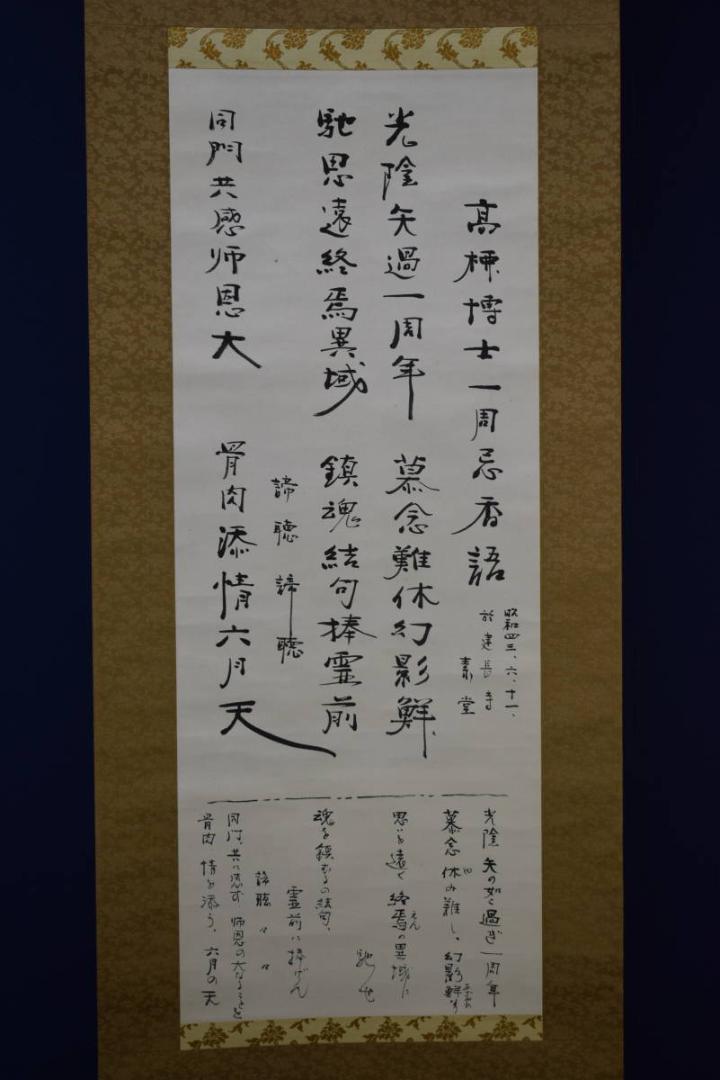 高梗博士一周忌香語
昭和四三、六、十一、
於建長寺
素堂
光陰矢過一周年 慕念難休幻影鮮
馳思遠終焉異域 鎮魂結句捧霊前
諦聴諦聴
同門共感师恩大 骨肉添情六月天
光陰 矢の如く過ぎ 一周年
慕念 休み難し、幻影鮮か
思いを遠く 終焉の異域に
えん
馳せ
魂を鎮むるの結句、
霊前に捧げん
諦聴 〃 〃
同門、共に感ず 师恩の大なることを
骨肉 情を添う、六月の天